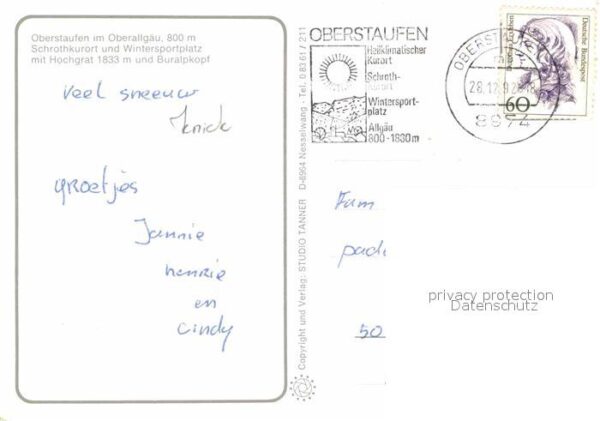 Oberstaufen im Oberallgäu, 800 m
Schrothkurort und Wintersportplatz
mit Hochgrat 1833 m und Buralpkopf
veel sneeuw
groetjes
Jannie
henkie
en
Cindy
Copyright und Verlag: STUDIO TANNER D-8964 Nesselwang - Tel. 0 83 61 / 211
OBERSTAUFEN
Heilklimatischer
Kurort
Schroth-
kurort
Wintersport-
platz
Allgäu
800-1830m
8974
Deutsche Bundespost
60
Fam
50
privacy protection
Datenschutz